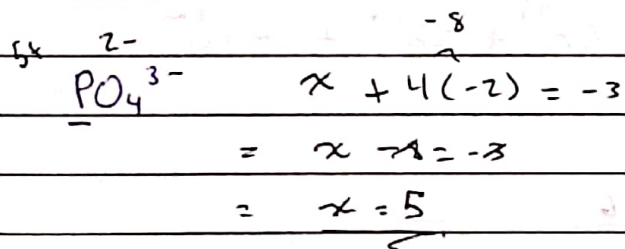 -8
5+ 2-
PO₄³⁻ x + 4(-2) = -3
= x -8 = -3
= x = 5